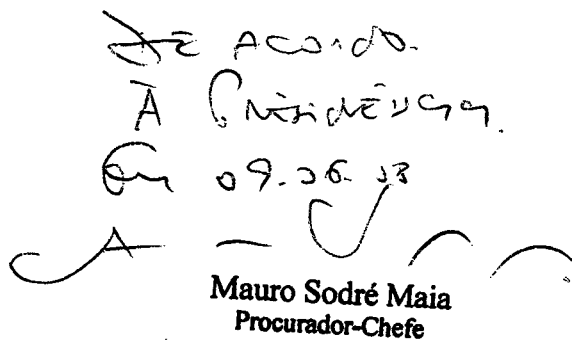 De acordo.
À Presidência.
Em 09.06.
Mauro Sodré Maia
Procurador-Chefe